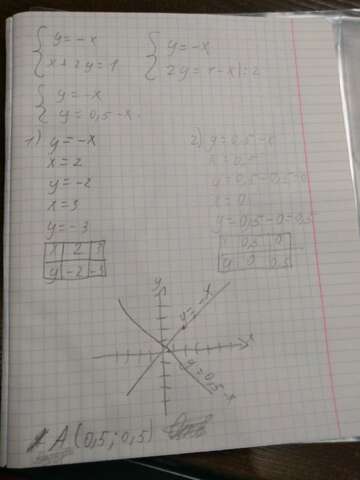 y = -x
x + 2y = 1
y = -x
2y = 1 - x |: 2
y = -x
y = 0,5 - x
1) y = -x
x = 2
y = -2
x = 3
y = -3
x 2 3
y -2 -3
2) y = 0,5 - x
x = 0,5
y = 0,5 - 0,5 = 0
x = 0
y = 0,5 - 0 = 0,5
0,5 0
y 0 0,5
y
x
y = -x
y = 0,5 - x
A (0,5; 0,5)